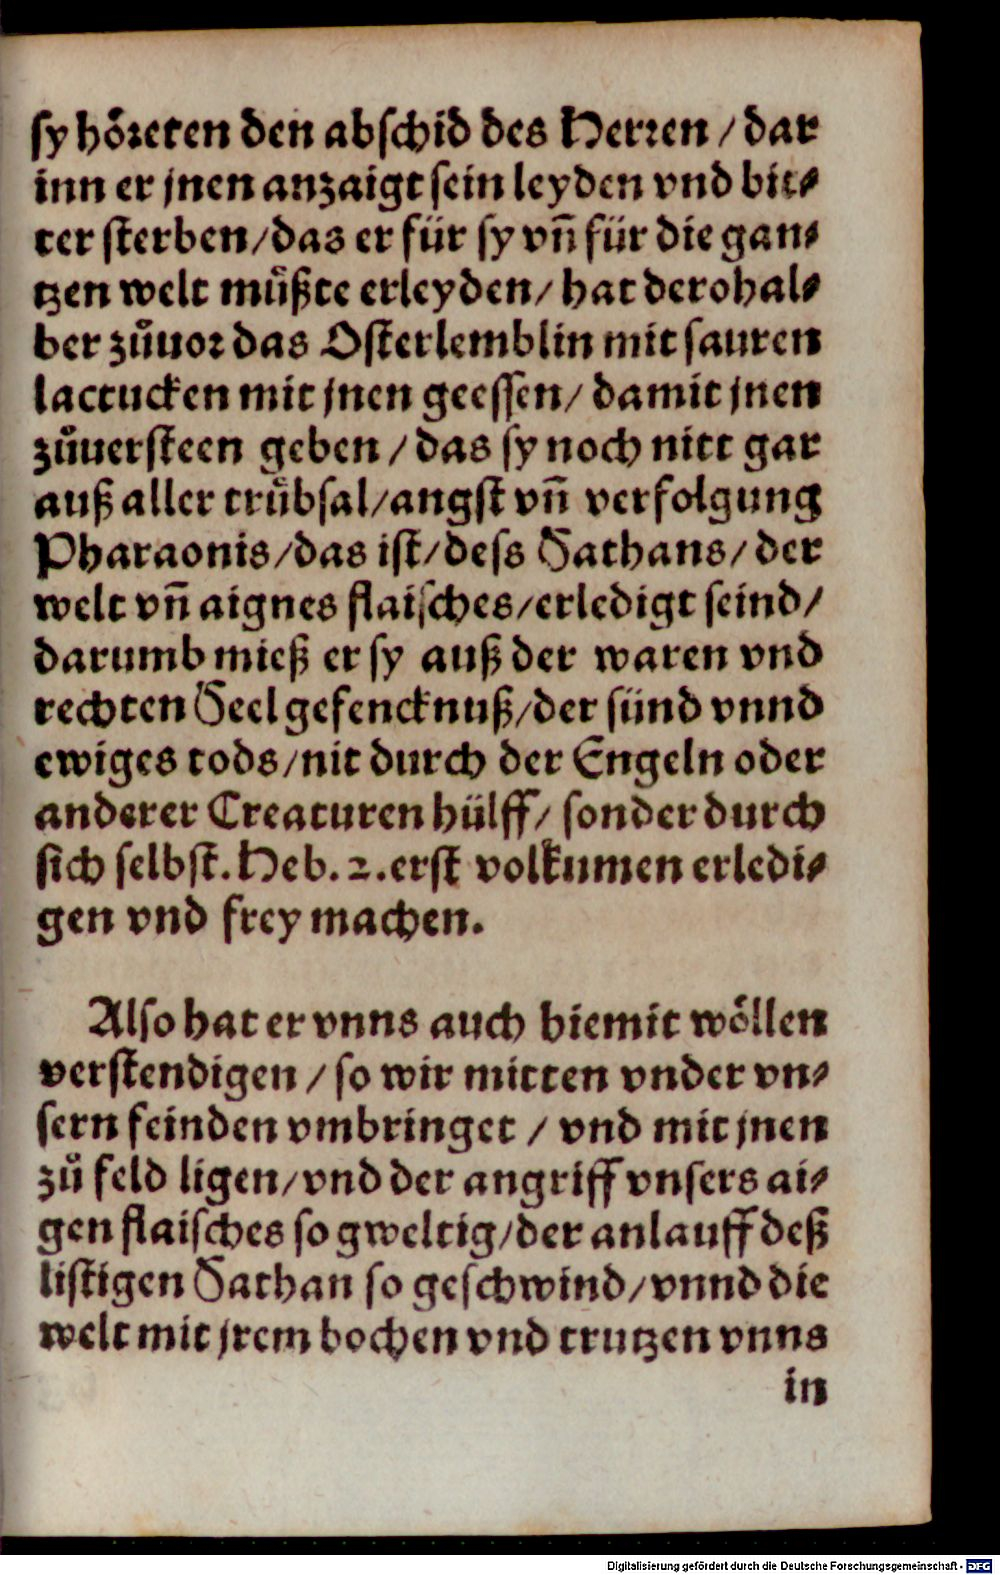 sy hoͤreten den abschid des Herren / dar
inn er jnen anzaigt sein leyden vnd bit⸗
ter sterben/das er für sy vñ für die gan⸗
tzen welt muͤßte erleyden/ hat derohal⸗
ber zůuor das Osterlemblin mit sauren
lactucken mit jnen geessen/ damit jnen
zůuersteen geben / das sy noch nitt gar
auß aller truͤbsal/angst vñ verfolgung
Pharaonis/das ist/dess Sathans/ der
welt vñ aignes flaisches/erledigt seind/
darumb mieß er sy auß der waren vnd
rechten Seel gefencknuß/der sünd vnnd
ewiges tods/nit durch der Engeln oder
anderer Creaturen hülff/ sonder durch
sich selbst. Heb. 2. erst volkumen erledi⸗
gen vnd frey machen.
Also hat er vnns auch hiemit woͤllen
verstendigen / so wir mitten vnder vn⸗
sern feinden vmbringet / vnd mit jnen
zů feld ligen/vnd der angriff vnsers ai⸗
gen flaisches so gweltig/der anlauff deß
listigen Sathan so geschwind/vnnd die
welt mit jrem bochen vnd trutzen vnns
in
Digitalisierung gefördert durch die Deutsche Forschungsgemeinschaft - DFG